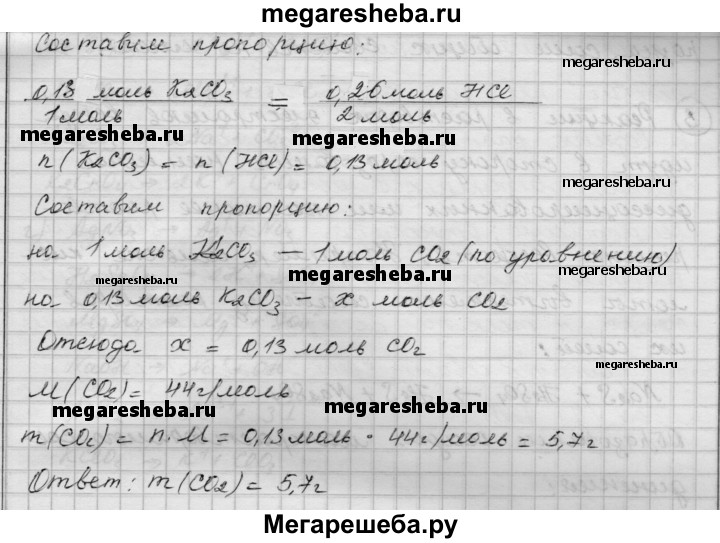 megaresheba.ru
Составим пропорцию:
megaresheba.ru
0,13 моль K2CO3 / 1 моль = 0,26 моль HCl / 2 моль
megaresheba.ru megaresheba.ru
n(K2CO3) = n(HCl) = 0,13 моль
megaresheba.ru
Составим пропорцию:
на 1 моль K2CO3 — 1 моль CO2 (по уравнению)
megaresheba.ru megaresheba.ru megaresheba.ru
на 0,13 моль K2CO3 — x моль CO2
Отсюда x = 0,13 моль CO2
megaresheba.ru
M(CO2) = 44 г/моль
megaresheba.ru megaresheba.ru
m(CO2) = n·M = 0,13 моль · 44 г/моль = 5,7 г
Ответ: m(CO2) = 5,7 г
Мегарешеба.ру